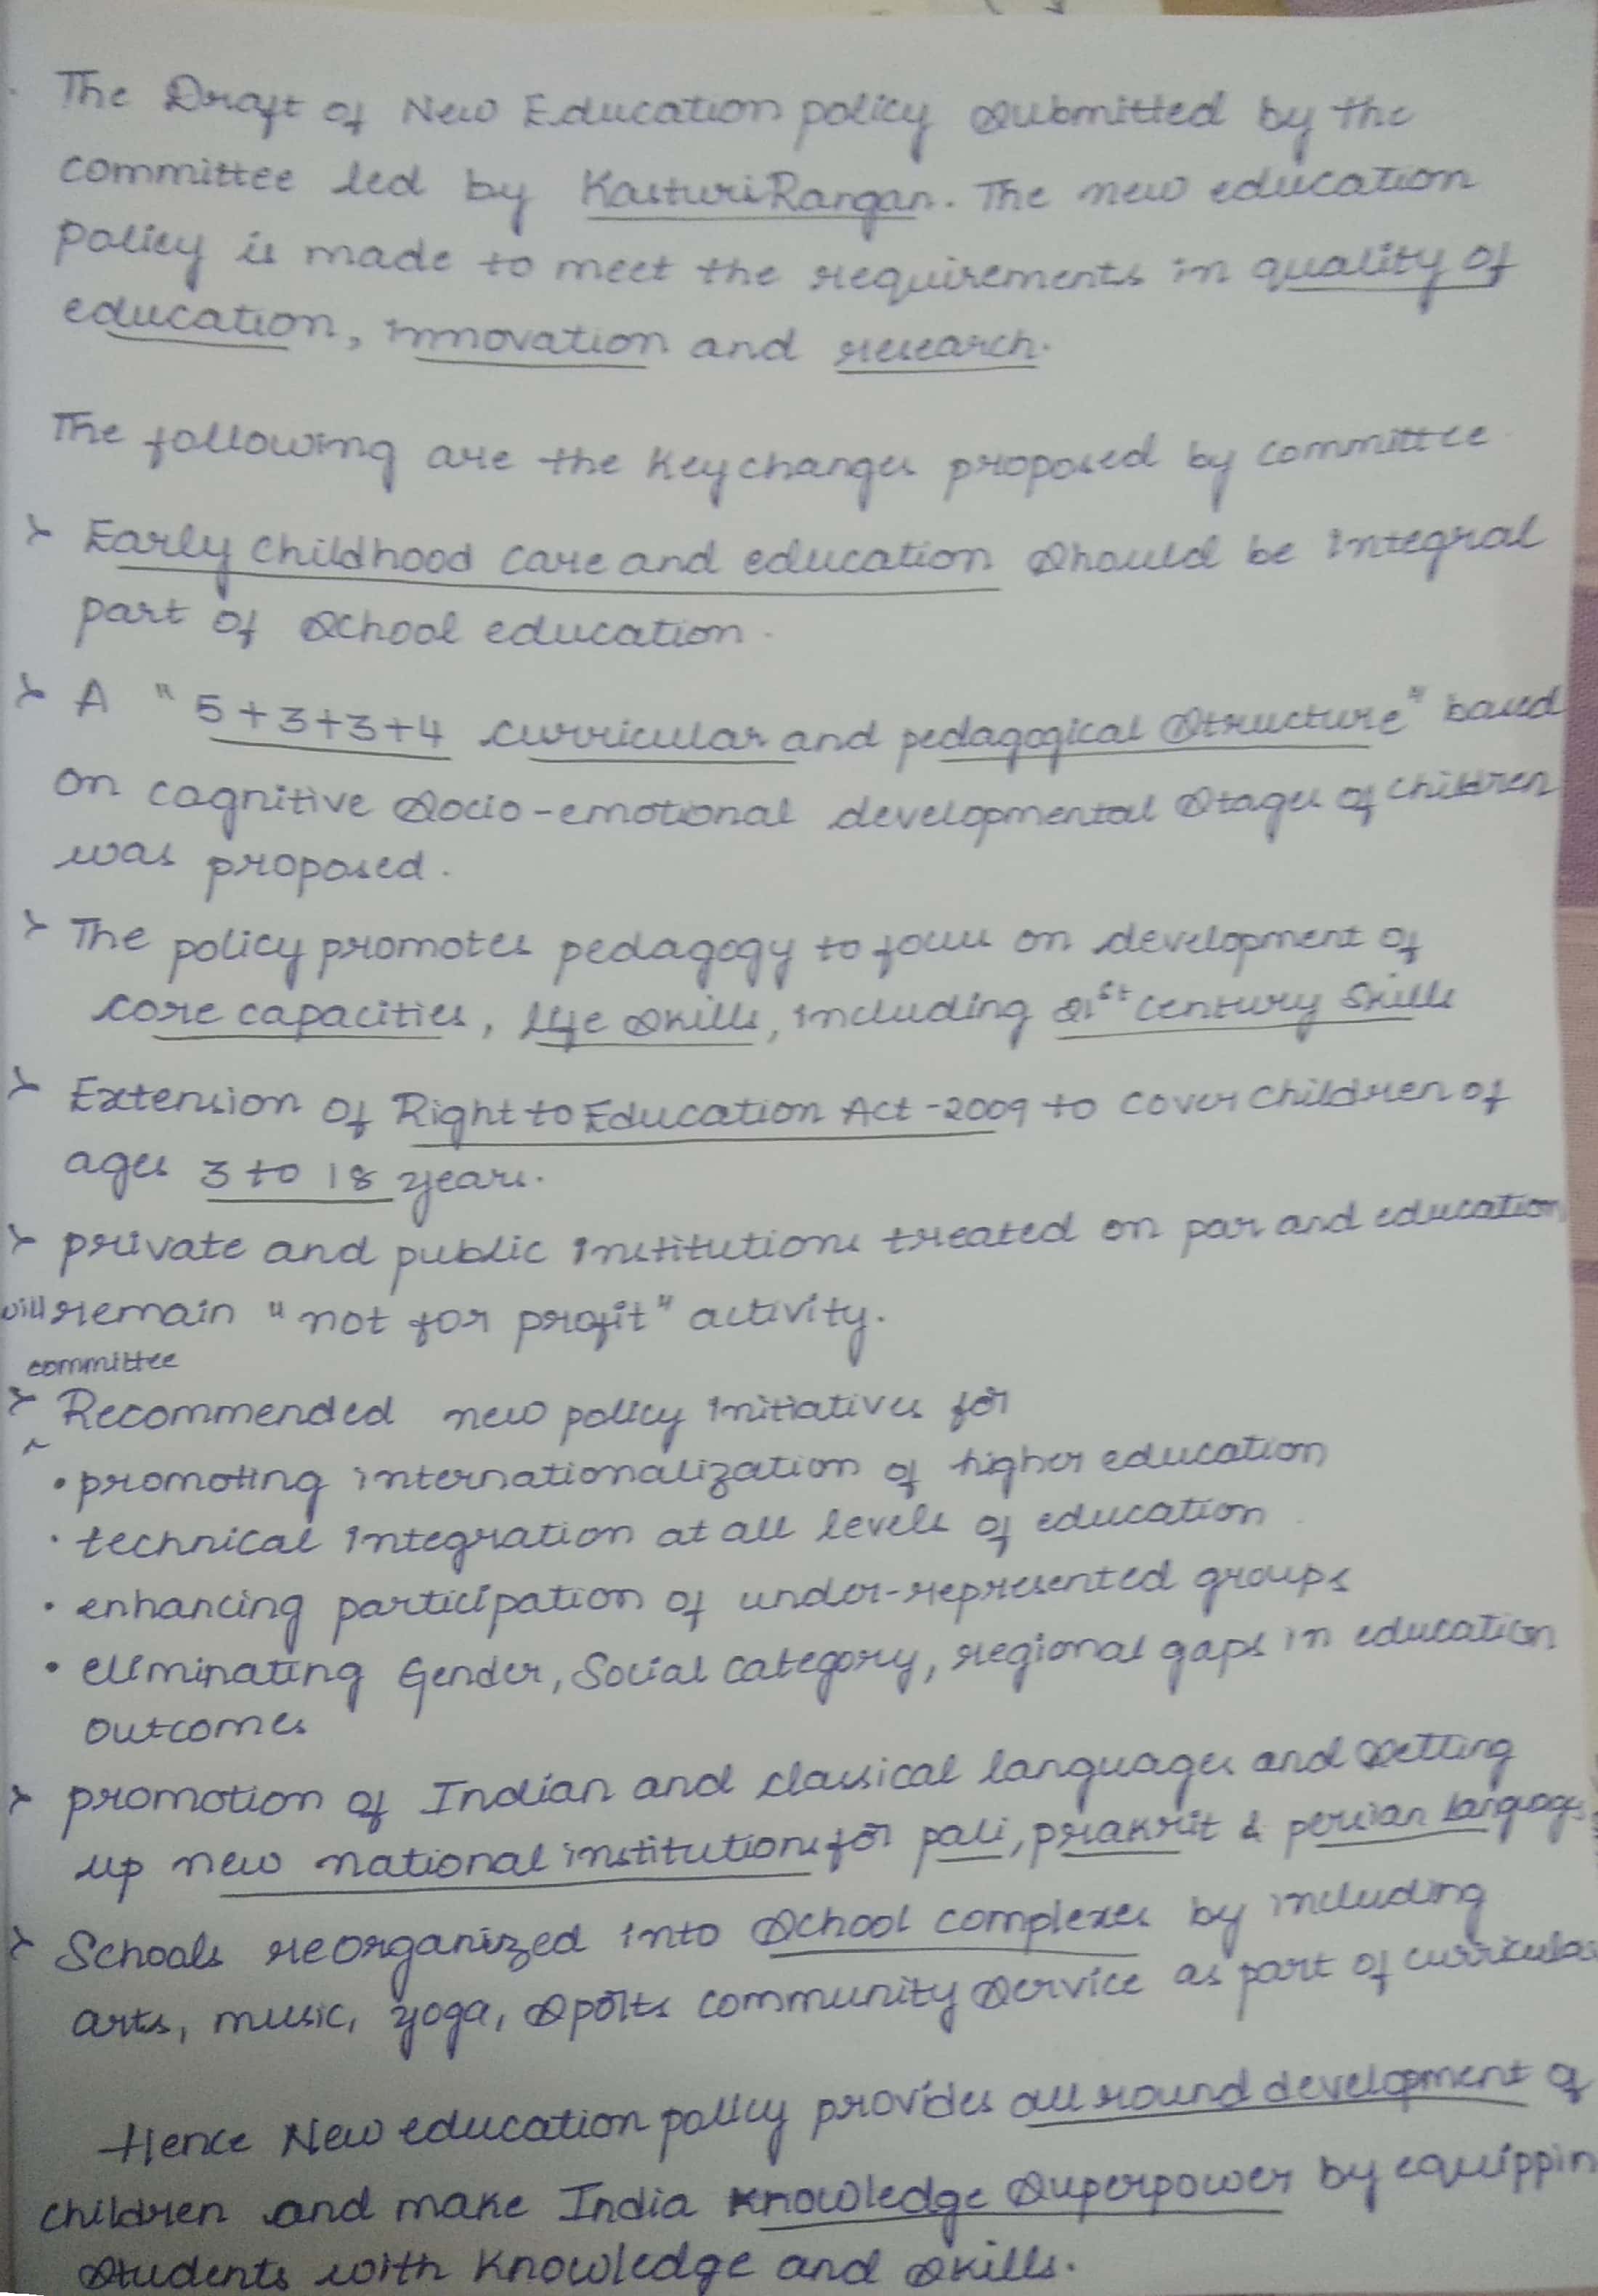 The Draft of New Education policy submitted by the
committee led by KasturiRangan. The new education
policy is made to meet the requirements in quality of
education, innovation and research.
The following are the key changes proposed by committee
➤ Early childhood care and education should be integral
part of school education.
➤ A "5+3+3+4 curricular and pedagogical structure" based
on cognitive socio-emotional developmental stages of children
was proposed.
➤ The policy promotes pedagogy to focus on development of
core capacities, life skills, including 21st century skills
➤ Extension of Right to Education Act-2009 to cover children of
ages 3 to 18 years.
➤ private and public institutions treated on par and education
will remain "not for profit" activity.
committee
➤ Recommended new policy initiatives for
• promoting internationalization of higher education
• technical integration at all levels of education
• enhancing participation of under-represented groups
• eliminating Gender, Social category, regional gaps in education
outcomes
➤ promotion of Indian and classical languages and setting
up new national institutions for pali, prakrit & persian languages
➤ Schools reorganized into school complexes by including
arts, music, yoga, sports community service as part of curricular
Hence New education policy provides all round development of
children and make India knowledge superpower by equippin
students with knowledge and skills.